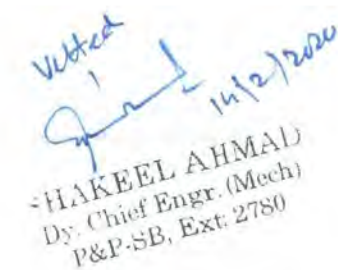 Vetted
14/2/2020
SHAKEEL AHMAD
Dy. Chief Engr. (Mech)
P&P-SB, Ext: 2780